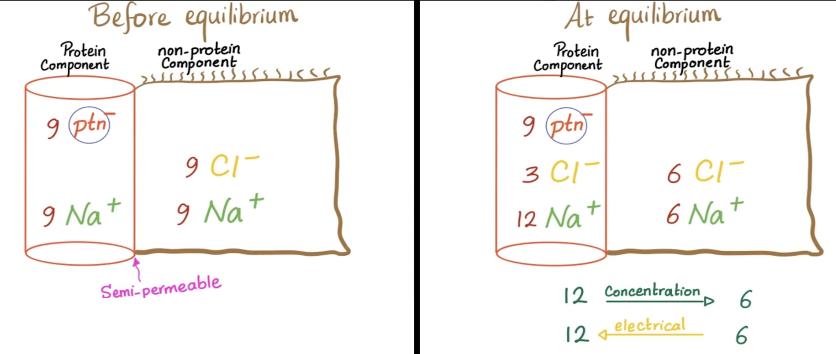 Before equilibrium
Protein
Component
non-protein
Component
9 ptn⁻
9 Cl⁻
9 Na⁺
9 Na⁺
Semi-permeable
At equilibrium
Protein
Component
non-protein
Component
9 ptn⁻
3 Cl⁻
6 Cl⁻
12 Na⁺
6 Na⁺
12 Concentration 6
12 electrical 6